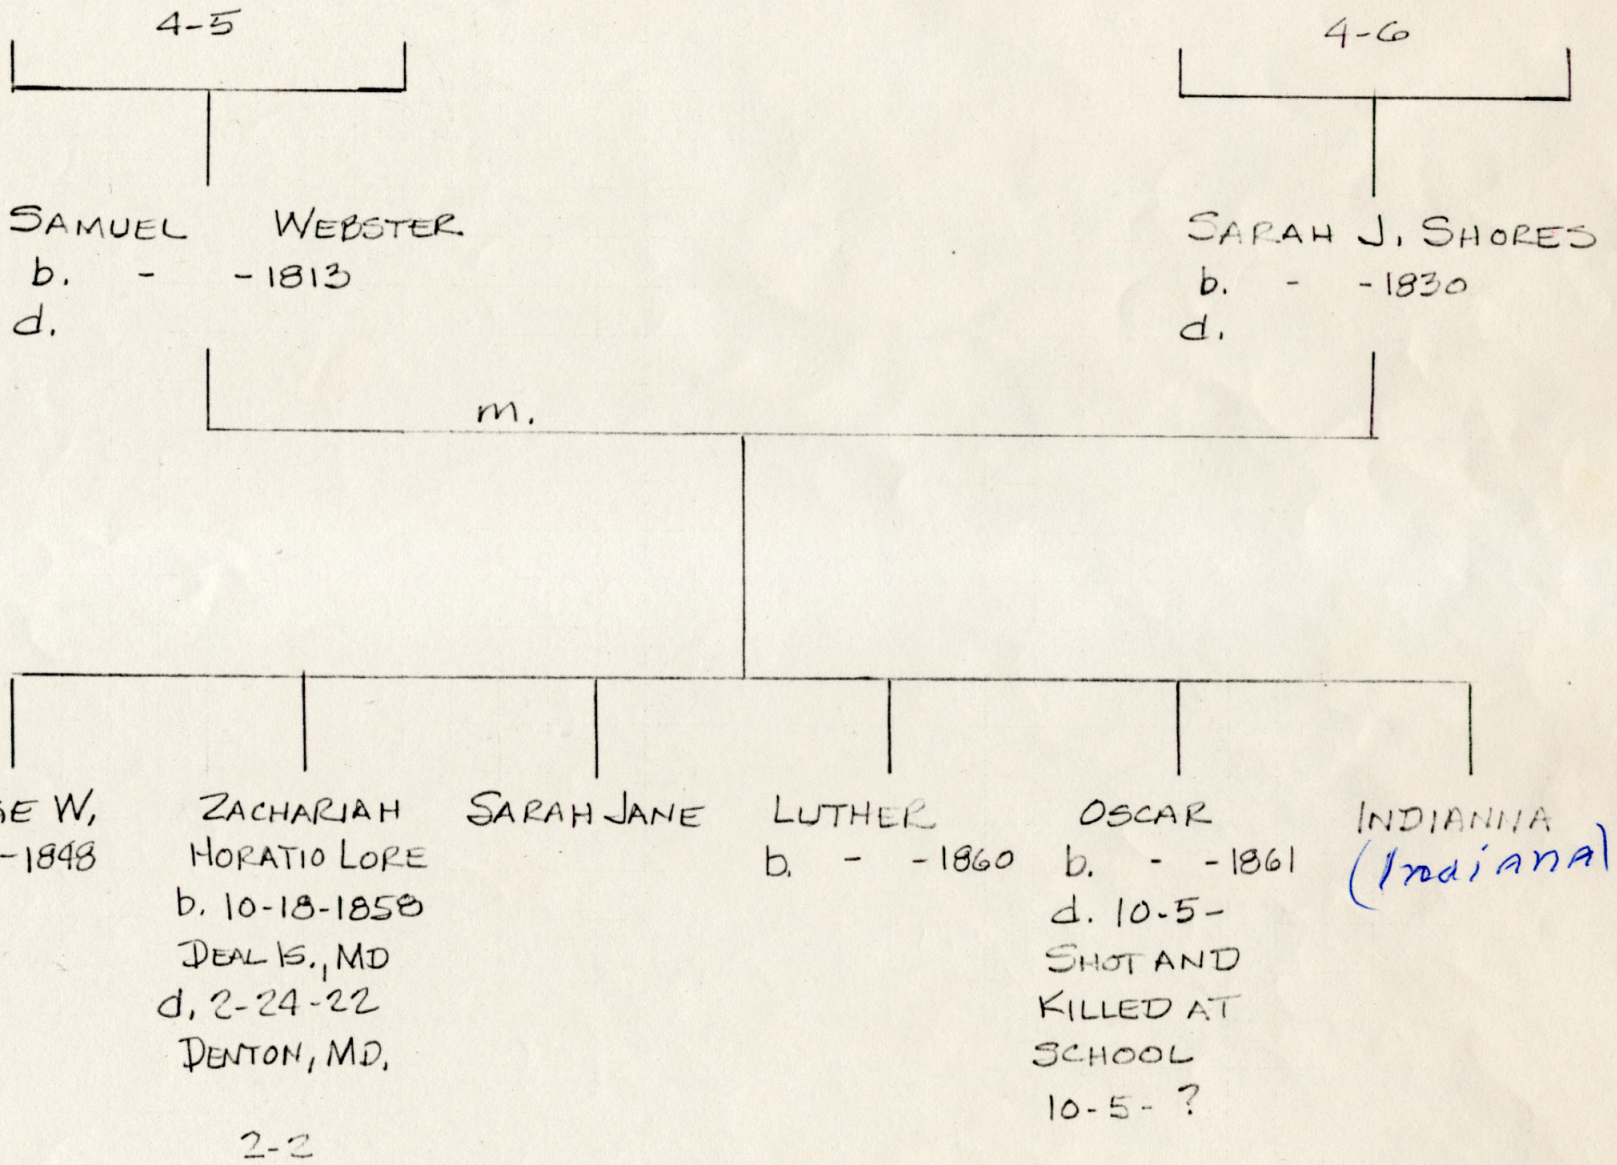 4-5
4-6
SAMUEL WEBSTER.
b. - -1813
d.
SARAH J. SHORES
b. - -1830
d.
m.
GE W,
-1848
ZACHARIAH
HORATIO LORE
b. 10-18-1858
DEAL IS., MD
d. 2-24-22
DENTON, MD.
2-2
SARAH JANE
LUTHER
b. - -1860
OSCAR
b. - -1861
d. 10-5-
SHOT AND
KILLED AT
SCHOOL
10-5-?
INDIANNA
(Indiana)